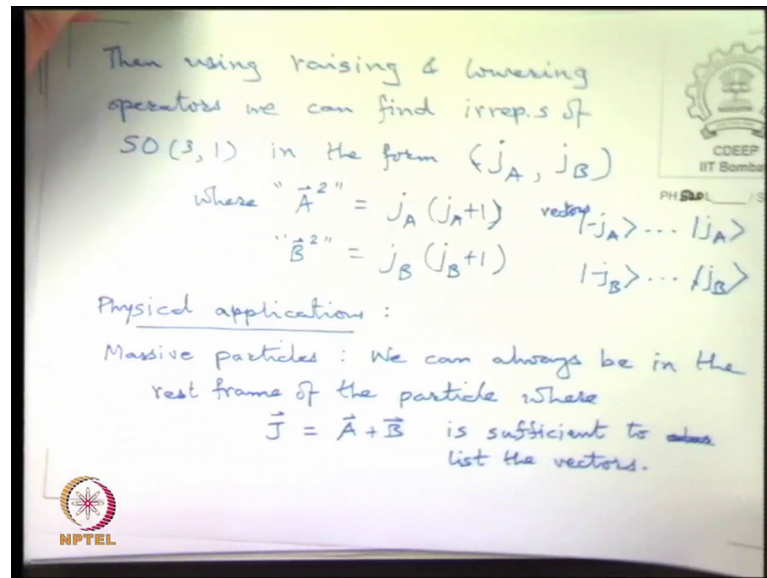 Then using raising & lowering
operators we can find irrep.s of
SO(3,1) in the form (j_A, j_B)
where "A⃗²" = j_A (j_A+1) vectors |-j_A> ... |j_A>
"B⃗²" = j_B (j_B+1) |-j_B> ... |j_B>
Physical applications :
Massive particles : We can always be in the
rest frame of the particle where
J⃗ = A⃗ + B⃗ is sufficient to
list the vectors.
CDEEP
IIT Bombay
NPTEL